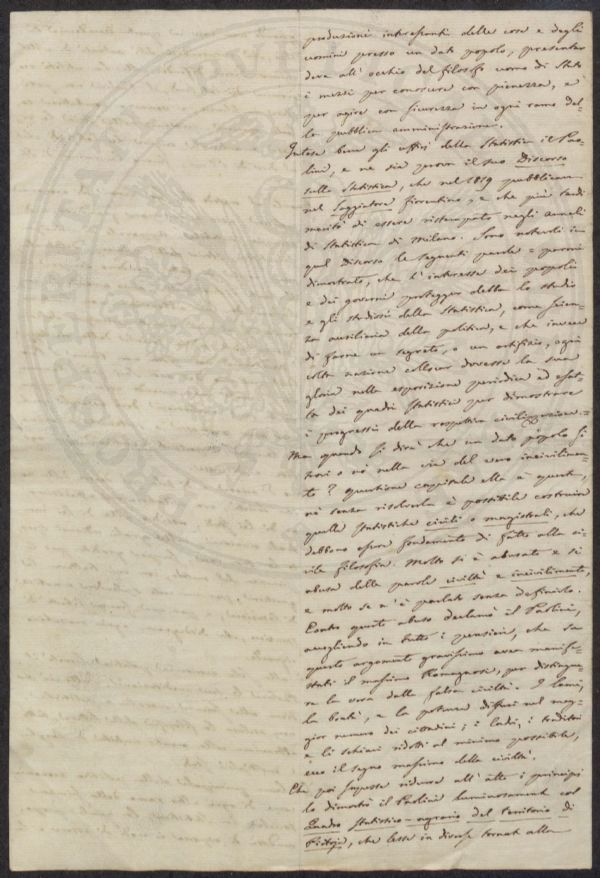 produzioni interessanti delle cose e degli
uomini presso un dato popolo, presentar
deve all' occhio del filosofo uomo di Stato
i mezzi per conoscere con pienezza, e
per agire con sicurezza in ogni ramo del-
la pubblica amministrazione.
Intese bene gli uffizi della Statistica il Pao-
lini, e ne sia prova il suo Discorso
sulla Statistica, che nel 1819 pubblicava
nel Saggiatore fiorentino, e che più tardi
meritò di essere ristampato negli annali
di Statistica di Milano. Sono notevoli in
quel Discorso le seguenti parole = parmi
dimostrato, che l'interesse dei popoli
e dei governi protegger debba lo studio
e gli studiosi della Statistica, come scien-
za ausiliaria della politica, e che invece
di farne un segreto, o un artifizio, ogni
colta nazione collocar dovesse la sua
gloria nella esposizione periodica ed esat-
ta dei quadri statistici per dimostrare
i progressi della rispettiva civilizzazione. =
Ma quando si dirà che un dato popolo si
trovi o nò nella via del vero incivilimen-
to? questione capitale ella è questa,
nè senza risolverla è possibile costruire
quelle statistiche civili o magistrali, che
debbono essere fondamento di fatto alla ci-
vile filosofia. Molto si è abusato e si
abusa delle parole civiltà e incivilimento,
e molto se n'è parlato senza definirlo.
Contro questo abuso declamò il Paolini,
accogliendo in tutto i pensieri, che su
questo argomento gravissimo avea manife-
stati il massimo Romagnosi, per distingue-
re la vera dalla falsa civiltà. I lumi,
la bontà, e la potenza diffusi nel mag-
gior numero dei cittadini; i ladri, i traditori
e li schiavi ridotti al minimo possibile,
ecco il segno massimo della civiltà.
Che poi sapesse ridurre all' atto i principi
lo dimostrò il Paolini luminosamente col
Quadro statistico-agrario del territorio di
Pistoja, che lesse in diverse tornate alla